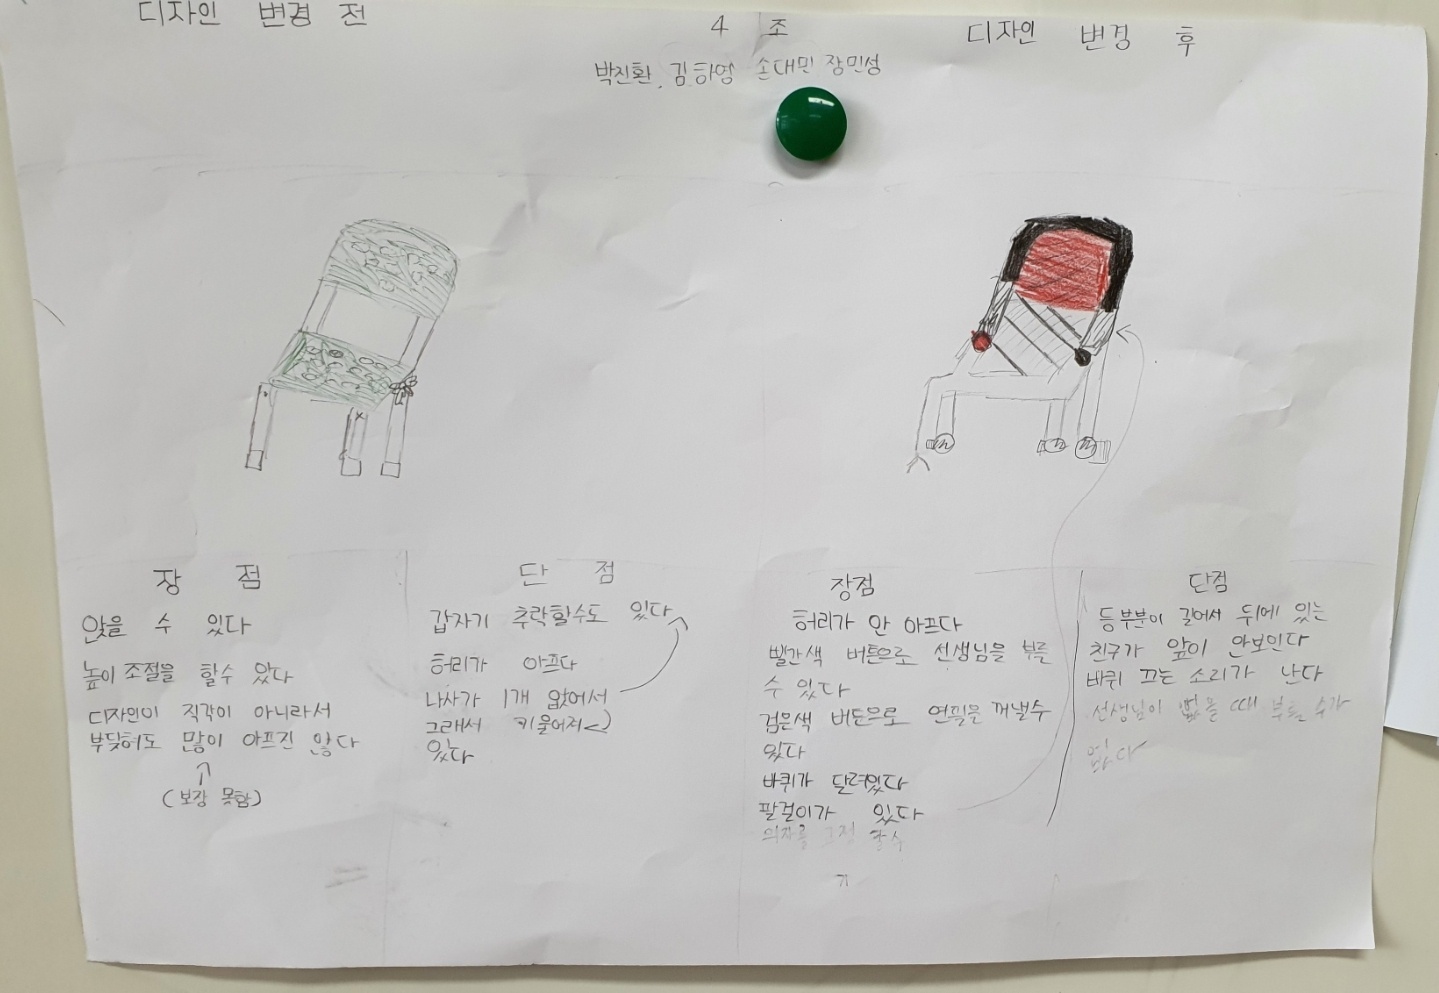 디자인 변경 전
4 조
디자인 변경 후
박진환, 김하영 손대민 장민성
장 점
앉을 수 있다
높이 조절을 할수 있다
디자인이 직각이 아니라서
부딪혀도 많이 아프진 않다
(보장 못함)
단 점
갑자기 추락할수도 있다
허리가 아프다
나사가 1개 없어서
그래서 키울어져
있다
장점
허리가 안 아프다
빨간색 버튼으로 선생님을 부를
수 있다
검은색 버튼으로 연필을 꺼낼수
있다
바퀴가 달려있다
팔걸이가 있다
의자를
단점
등부분이 길어서 뒤에 있는
친구가 앞이 안보인다
바퀴 끄는 소리가 난다
선생님이 없을 때 부를 수가
없다